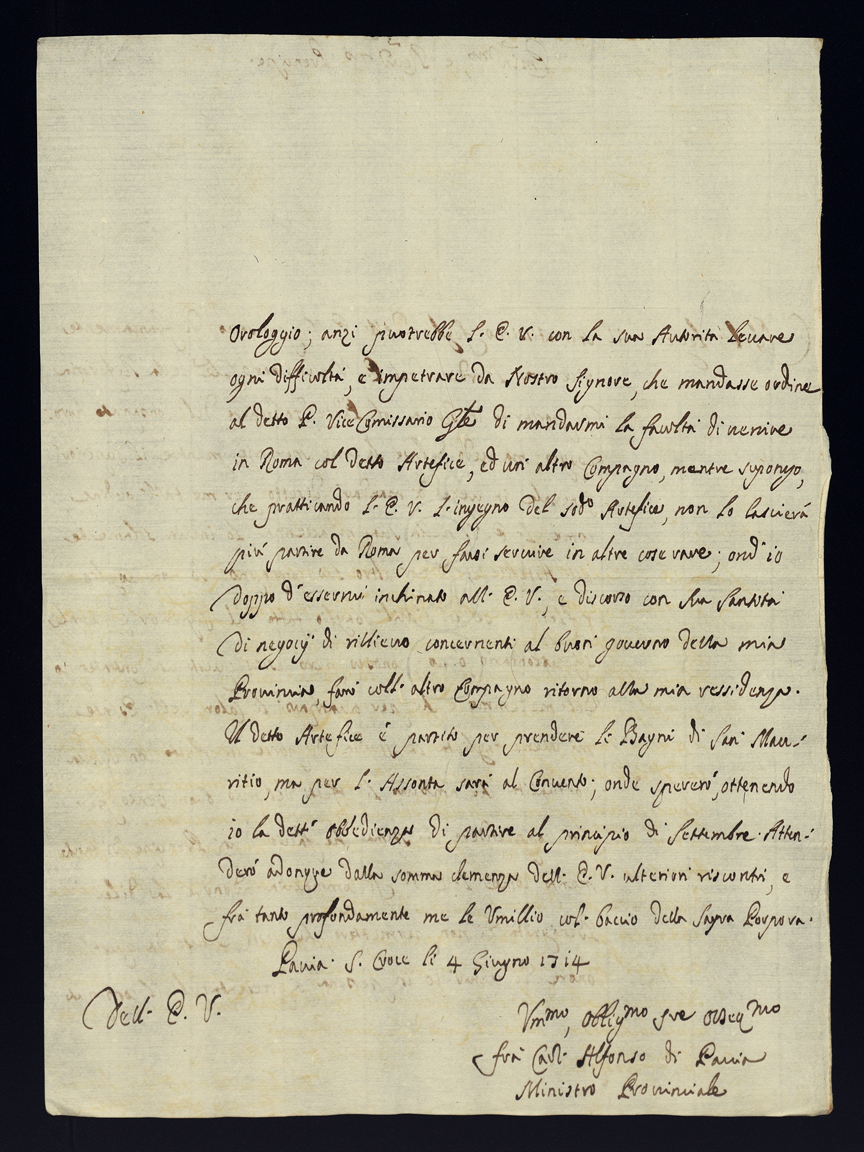 Orologgio; anzi puotrebbe l'E. V. con la sua Autorità levare
ogni difficoltà, e impetrare da Nostro Signore, che mandasse ordine
al detto P. ViceComissario Gle di mandarmi la facoltà di venire
in Roma col detto Artefice, ed un altro Compagno, mentre supongo,
che pratticando l'E. V. l'ingegno del sodo Artefice, non lo lascierà
più partire da Roma per farsi servire in altre cose rare; ond'io
doppo d'essermi inchinato all'E. V., e discorso con Sua Santità
di negocij di rillievo concernenti al buon governo della mia
Provincia, farò coll'altro Compagno ritorno alla mia ressidenza.
Il detto Artefice è partito per prendere li Bagni di San Mau-
ritio, ma per l'Assonta sarà al Convento; onde spererò, ottenendo
io la dett'obbedienza di partire al principio di Settembre. Atten-
derò adonque dalla somma clemenza dell'E. V. ulteriori riscontri, e
frà tanto profondamente me le Umillio col baccio della Sagra Porpora.
Pavia. S. Croce li 4 Giugno 1714
Dell'E. V.
Ummo, obbligmo sre obseqmo
frà Carl'Alfonso di Pavia
Ministro Provinciale